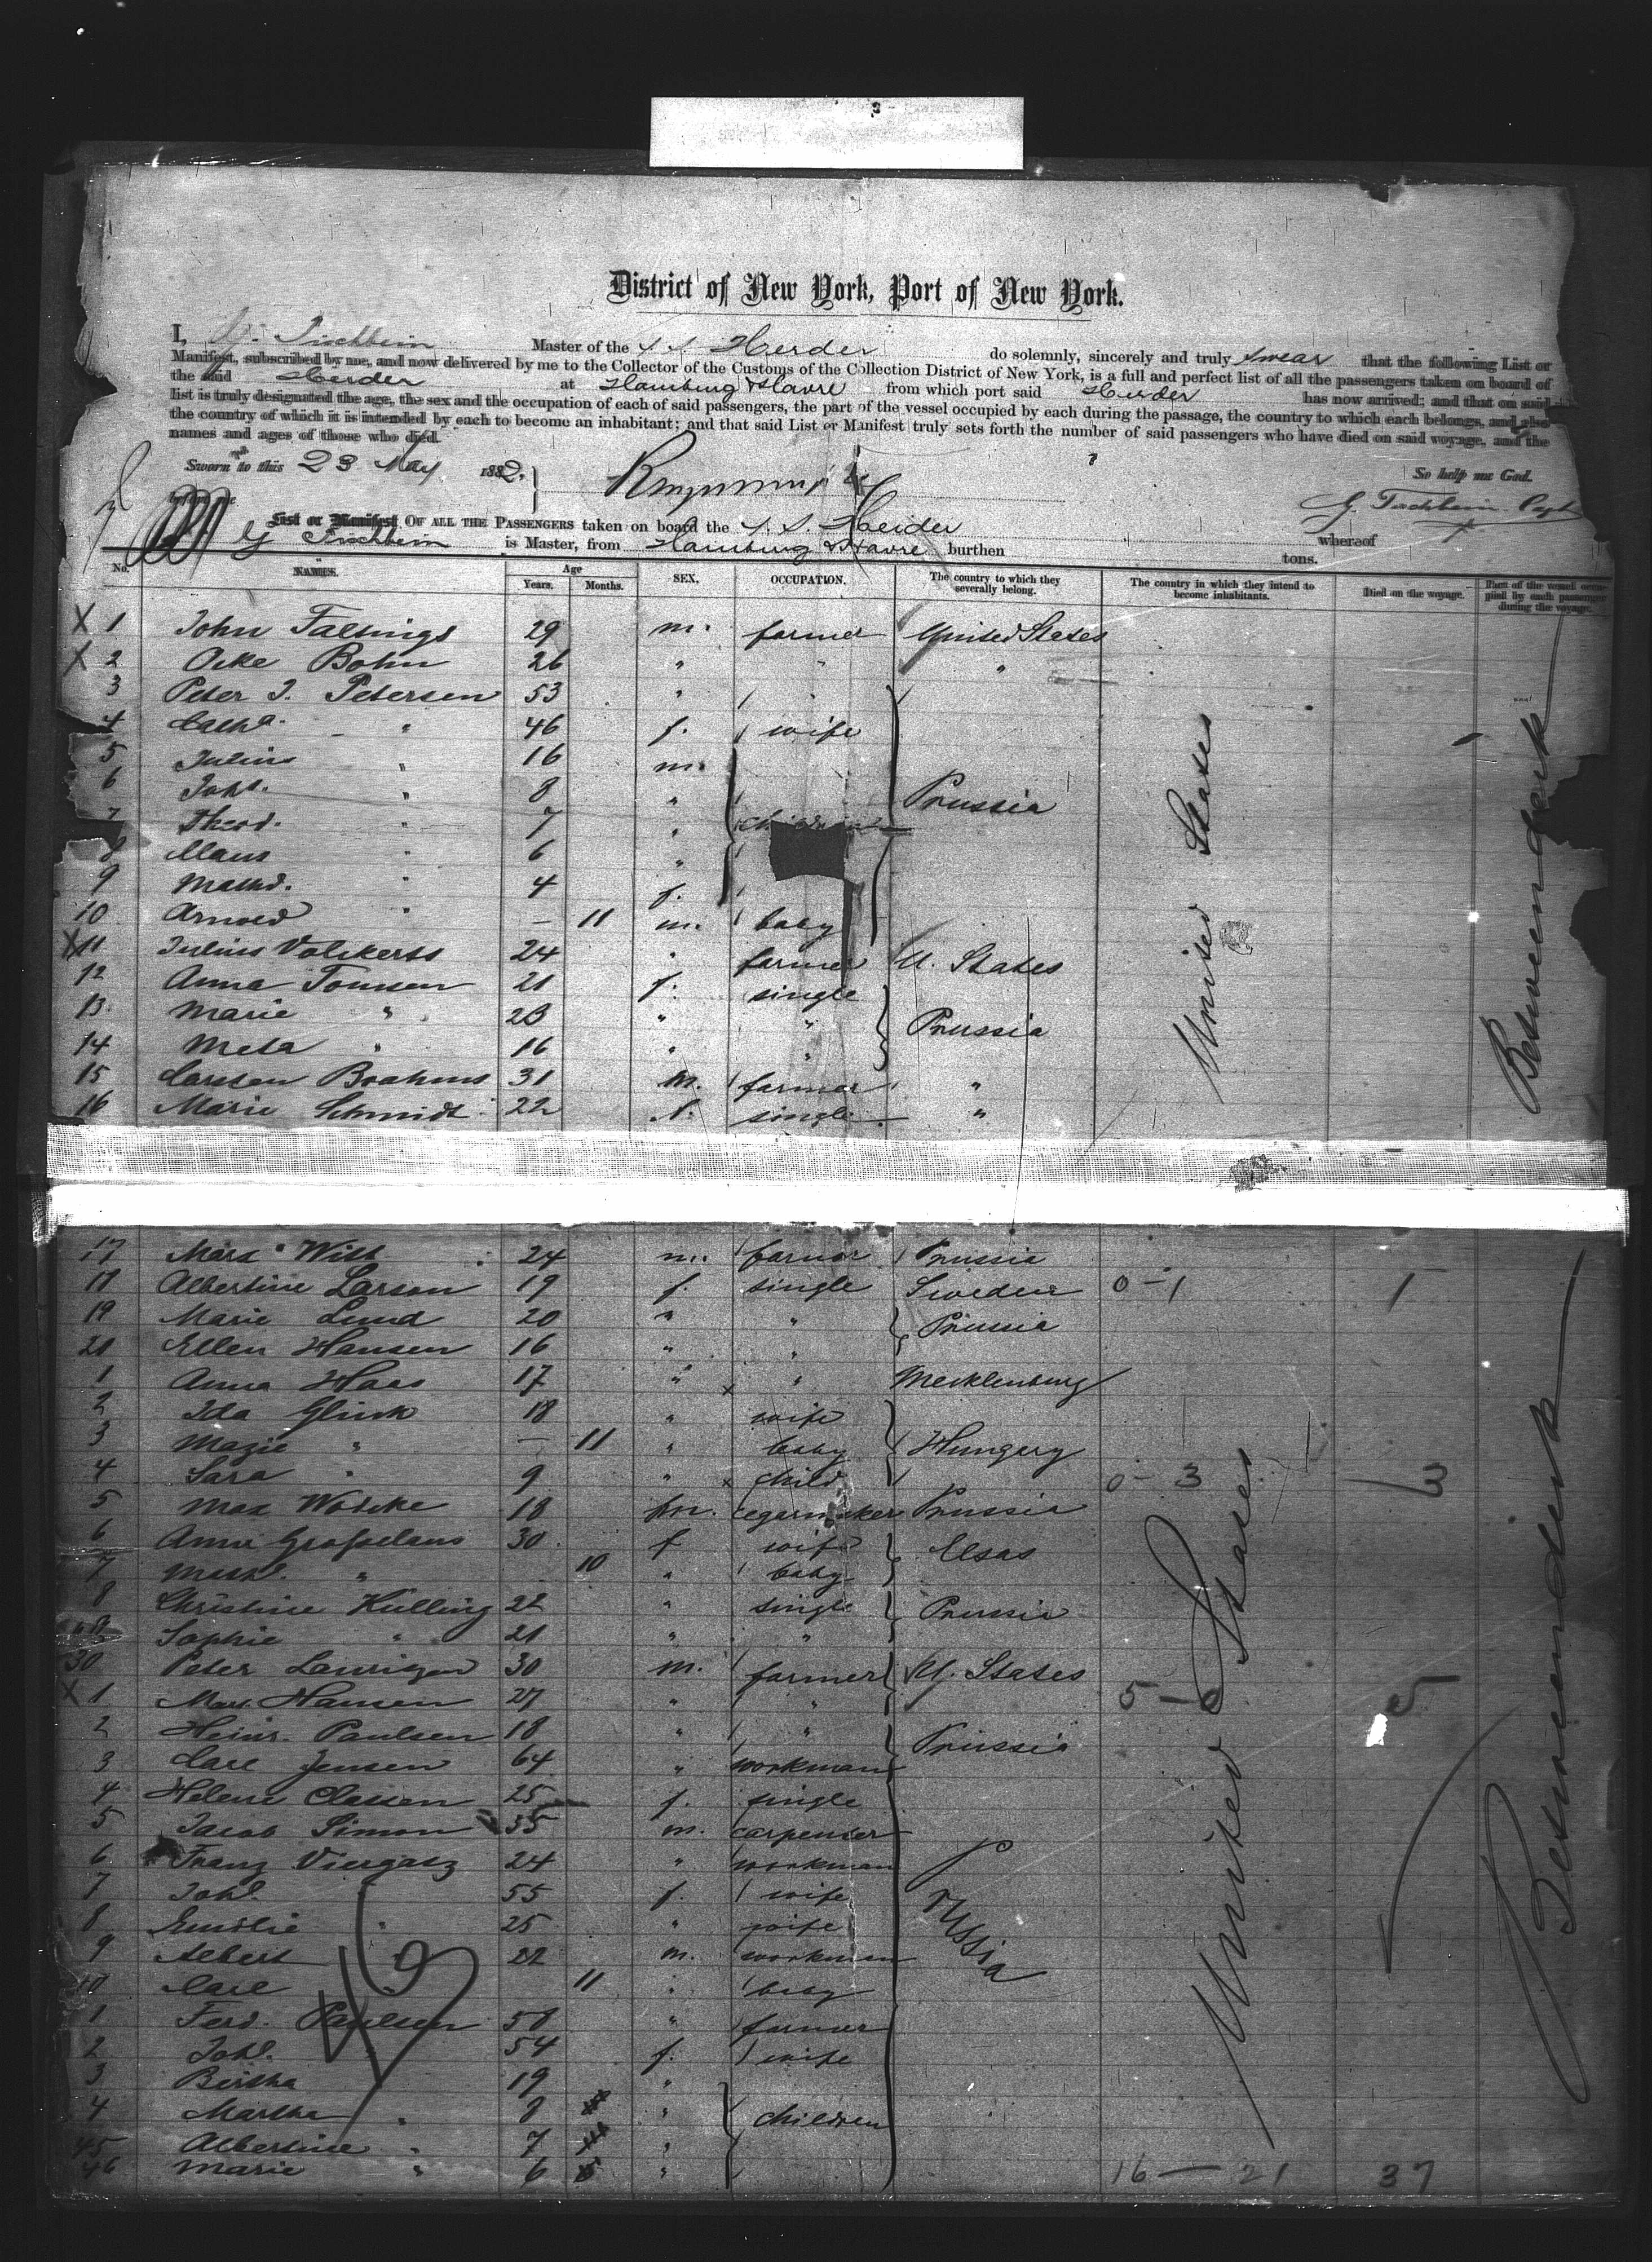 District of New York, Port of New York.
I, G. Fischbein Master of the S. S. Herder do solemnly, sincerely and truly swear that the following List or
Manifest, subscribed by me, and now delivered by me to the Collector of the Customs of the Collection District of New York, is a full and perfect list of all the passengers taken on board of
the said Herder at Hamburg & Havre from which port said Herder has now arrived; and that on said
list is truly designated the age, the sex and the occupation of each of said passengers, the part of the vessel occupied by each during the passage, the country to which each belongs, and also
the country of which it is intended by each to become an inhabitant; and that said List or Manifest truly sets forth the number of said passengers who have died on said voyage, and the
names and ages of those who died.
So help me God.
Sworn to this 23 May 1882.
before me
List or Manifest OF ALL THE PASSENGERS taken on board the S. S. Herder whereof
G Fischbein is Master, from Hamburg & Havre burthen tons.
No. NAMES. Age Years. Months. SEX. OCCUPATION. The country to which they severally belong. The country in which they intend to become inhabitants. Died on the voyage. Part of the vessel occupied by each passenger during the voyage.
X 1 John 29 m. farmer United States
X 2 Ocke Bohn 26 " " "
3 Peter J. Petersen 53 " "
4 Catha. " 46 f. wife
5 Julius " 16 m.
6 Johs. " 8 " Prussia
7 Theod. " 7 " children
8 Claus " 6 "
9 Mathd. " 4 f.
10 Arnold " — 11 m. baby
X 11 Julius Volckerts 24 " farmer U. States
12 Anna Tonnsen 21 f. single
13 Marie " 23 " " Prussia
14 Meta " 16 " "
15 Carsten Brahms 31 m. farmer "
16 Marie Schmidt 22 f. single "
United States
Betweendeck
17 Marx Witt 24 m. farmer Prussia
18 Albertine Larson 19 f. single Sweden 0-1 1
19 Marie Lund 20 " " Prussia
20 Ellen Hansen 16 " "
1 Anna Haas 17 " " Mecklenburg
2 Ida Glück 18 " wife
3 " — 11 " baby Hungery
4 Sara " 9 " child 0-3 3
5 Max 18 m. cegarmaker Prussia
6 Anna 30 f wife Elsas
7 Mathl. " 10 " baby
8 Christine Hülling 22 " single Prussia
Sophie " 21 " "
30 Peter Laurizen 30 m. farmer U. States
X 1 Mart. Hansen 27 " " 5-0 5
2 Heinr. Paulsen 18 " " Prussia
3 Carl Jensen 64 " workman
4 Helene Classen 25 f. single
5 Jacob Simon 35 m. carpenter
6 Franz Viergatz 24 " workman
7 Johl. 55 f. wife
8 Emilie " 25 " wife
9 Albert 22 m. workman
10 Carl 11 " baby
Prussia
1 Ferd. Paulsen 58 " farmer
2 Johl. 54 f. wife
3 Bertha 19 "
4 Martha " 8 " children
45 Albertine " 7 "
46 Marie " 6 "
16-21 37
United States
Betweendeck